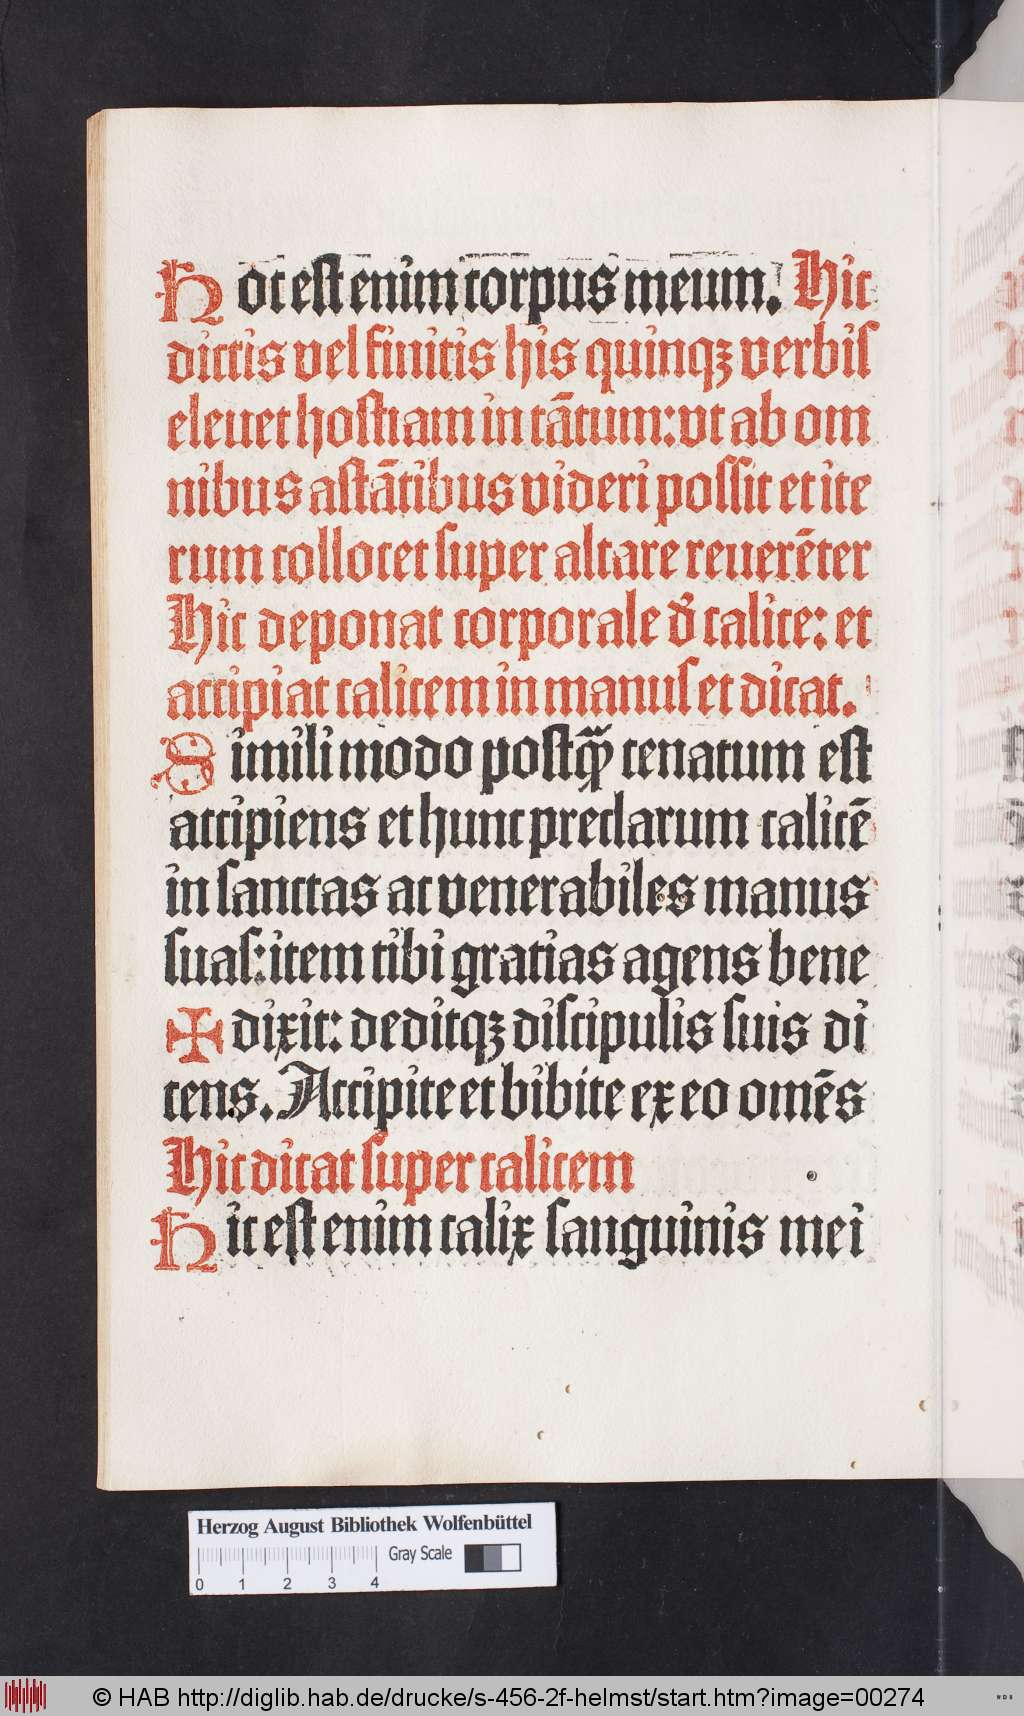 Hoc est enim corpus meum. Hic
dictis vel finitis his quinqꝫ verbiſ
eleuet hostiam in tātum: vt ab om
nibus astātibus videri possit et ite
rum collocet super altare reuerēter
Hic deponat corporale d' calice: et
accipiat calicem in manuſ et dicat.
Simili modo postqᷓ cenatum est
accipiens et hunc preclarum calicē
in sanctas ac venerabiles manus
suaſ: item tibi gratias agens bene
✠ dixit: deditqꝫ discipulis suis di
cens. Accipite et bibite ex eo omēs
Hic dicat super calicem
Hic est enim calix sanguinis mei
Herzog August Bibliothek Wolfenbüttel
Gray Scale
0 1 2 3 4
© HAB http://diglib.hab.de/drucke/s-456-2f-helmst/start.htm?image=00274